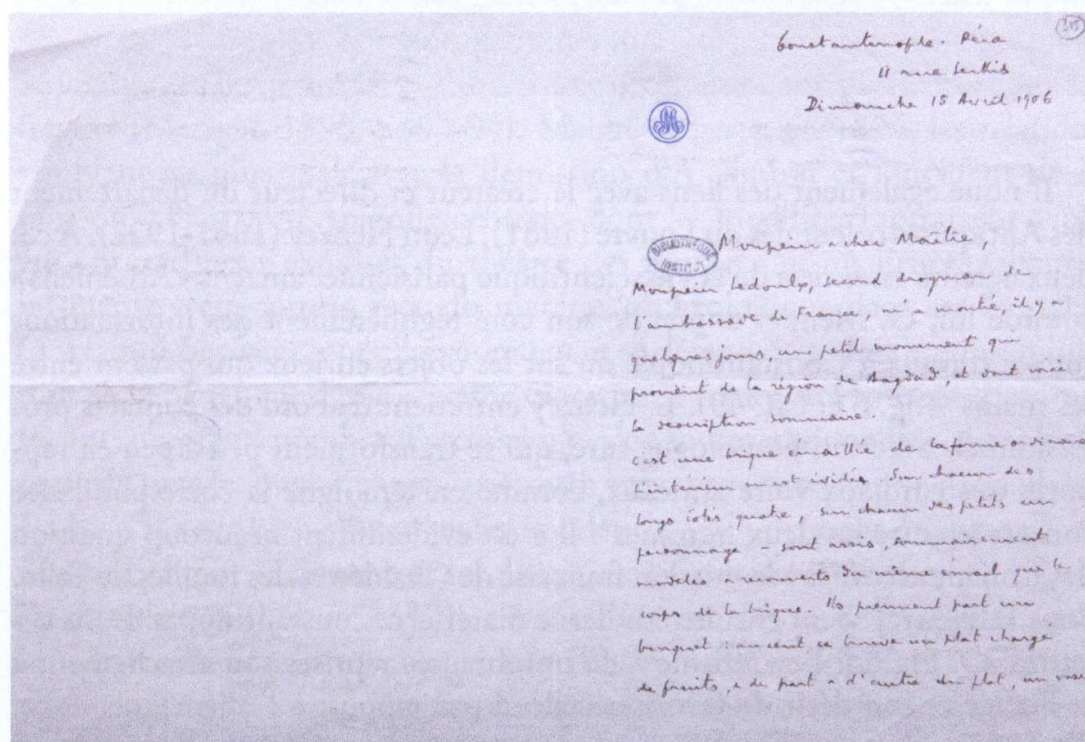 315
Constantinople. Péra
11 rue Serkis
Dimanche 15 Avril 1906
BIBLIOTHEQUE
INSTITUT
Monsieur & cher Maître,
Monsieur Ledoulx, second drogman de
l'ambassade de France, m'a montré, il y a
quelques jours, un petit monument qui
provient de la région de Bagdad, et dont voici
la description sommaire.
C'est une brique émaillée de la forme ordinaire
l'intérieur en est évidé. Sur chacun des
longs côtés quatre, sur chacun des petits un
personnage – sont assis, sommairement
modelés & recouverts du même émail que le
corps de la brique. Ils prennent part à un
banquet : au centre se trouve un plat chargé
de fruits, & de part & d'autre du plat, un vase